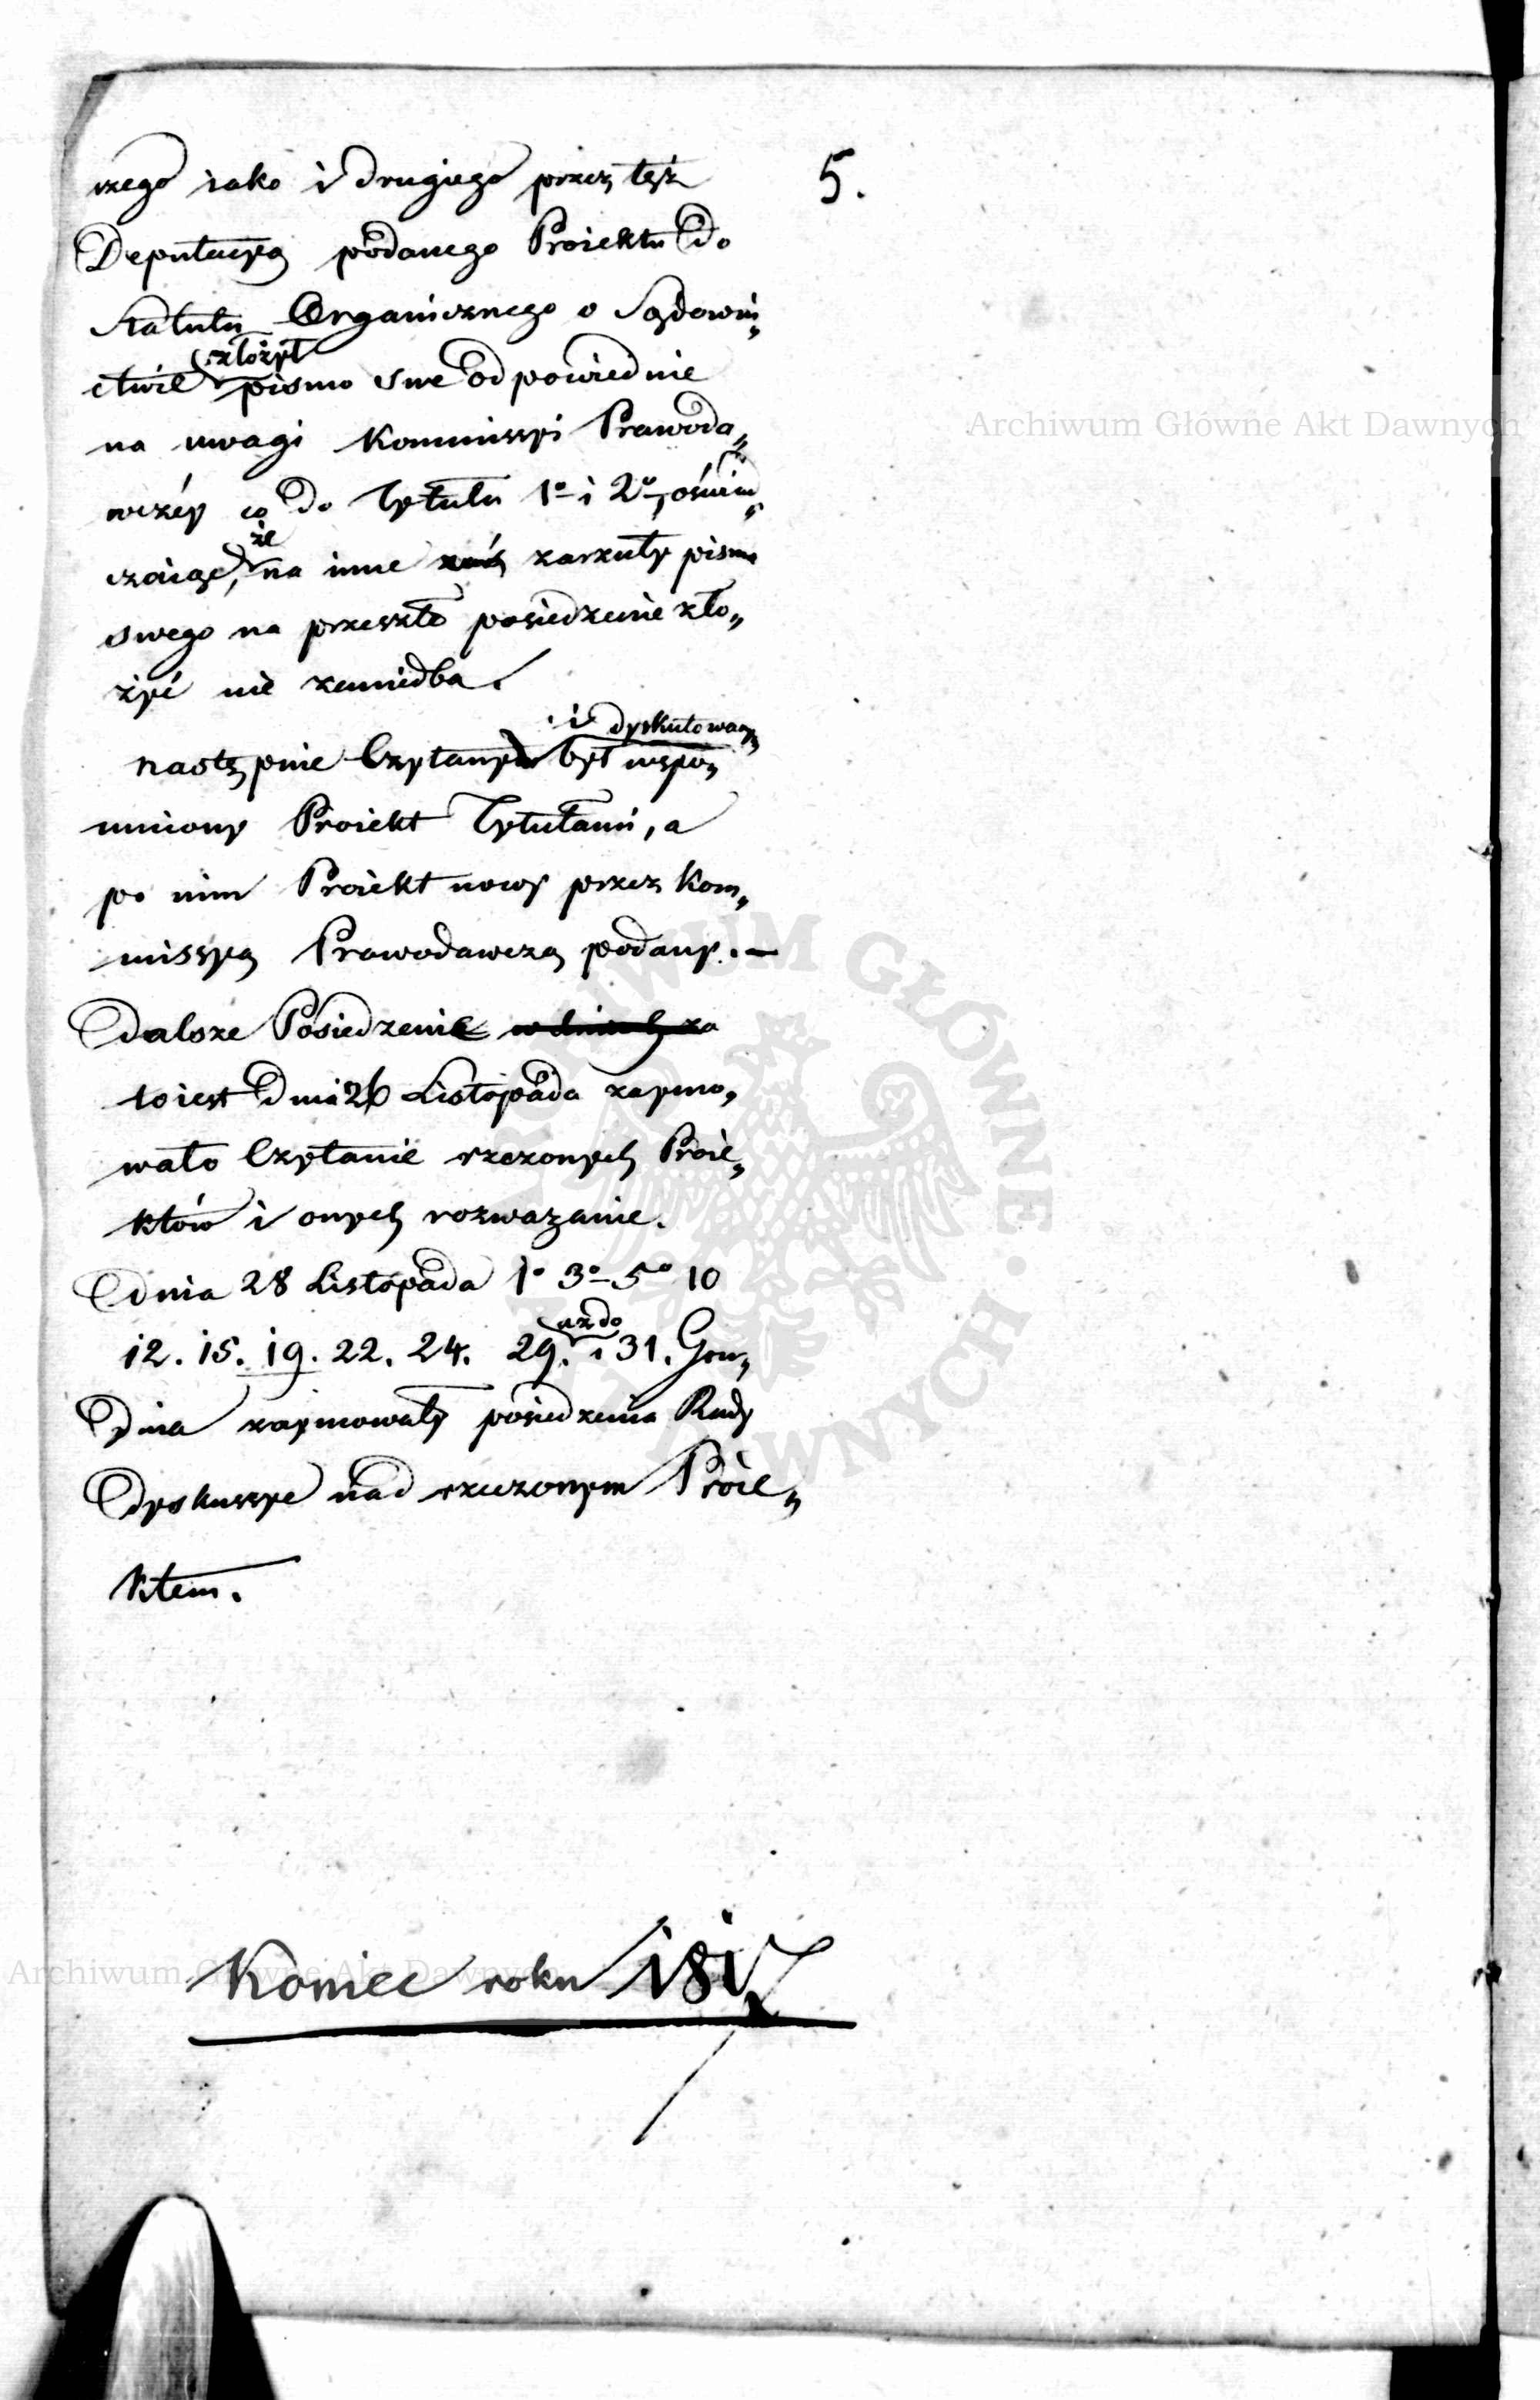 5.
wszego iako i drugiego przez też
Deputacyą podanego Proiektu do
Statutu Organicznego o Sądowni„
złożył
ctwie pismo swe odpowiednie
na uwagi Kommissyi Prawoda„
wczéy co do Tytułu 1º i 2º, oświad„
że
czaiąc, na inne zarzuty pisma
swego na przeszłe posiedzenie zło„
żyć nie zaniedba.
i dyskutowany
następnie Czytany był wspo„
mniony Proiekt Tytułami, a
po nim Proiekt nowy przez Kom„
missyą Prawodawczą podany. —
Dalsze Posiedzenie w dniach za
to iest Dnia 26 Listopada zaymo„
wało Czytanie rzeczonych Proie„
któw i onych rozważanie.
Dnia 28 Listopada 1º 3º 5º 10
aż do
12. 15. 19. 22. 24. 29. i 31. Gru„
dnia zaymowały posiedzenia Rady
Dyskussye nad rzeczonym Proie„
ktem.
Koniec roku 1817
Archiwum Główne Akt Dawnych
Archiwum Główne Akt Dawnych
ARCHIWUM GŁÓWNE AKT DAWNYCH